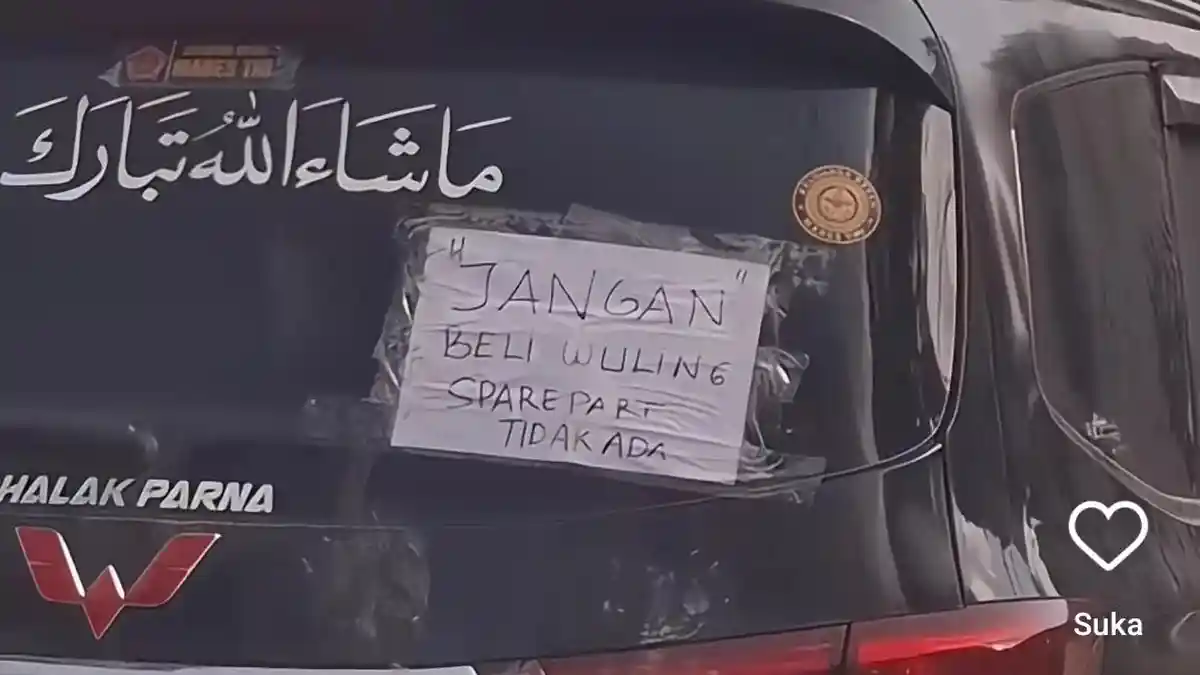 MABES TNI
ما شاء الله تبارك
"JANGAN"
BELI WULING
SPAREPART
TIDAK ADA
HALAK PARNA
Suka